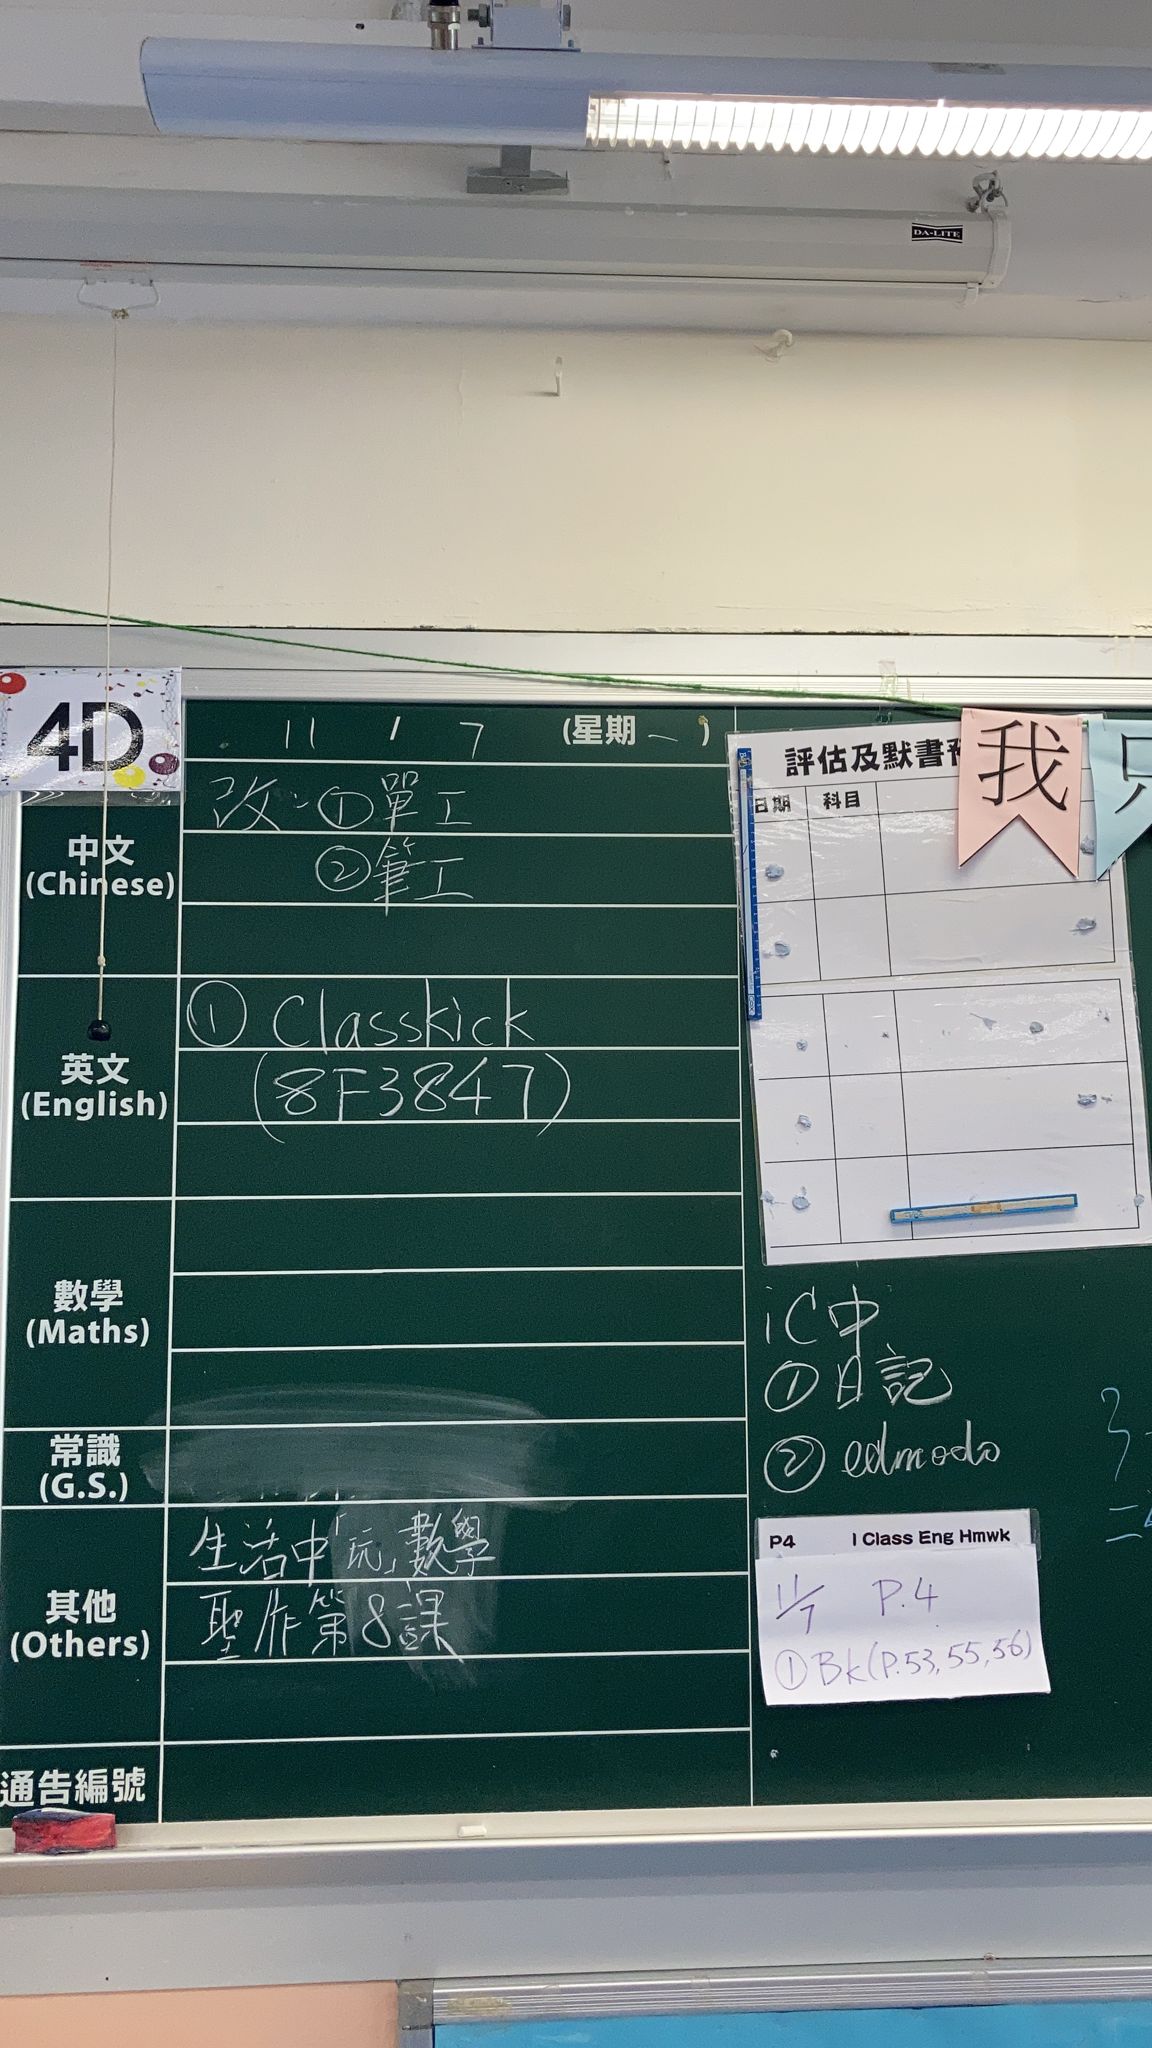 DA-LITE
4D
11 / 7 (星期一)
中文
(Chinese)
改：①單工
②筆工
英文
(English)
① Classkick
(8F3847)
數學
(Maths)
常識
(G.S.)
其他
(Others)
生活中「玩」數學
聖作第8課
通告編號
評估及默書
日期 科目
我
iC中
①日記
② edmodo
P4 I Class Eng Hmwk
11/7 P.4
①Bk(P.53,55,56)